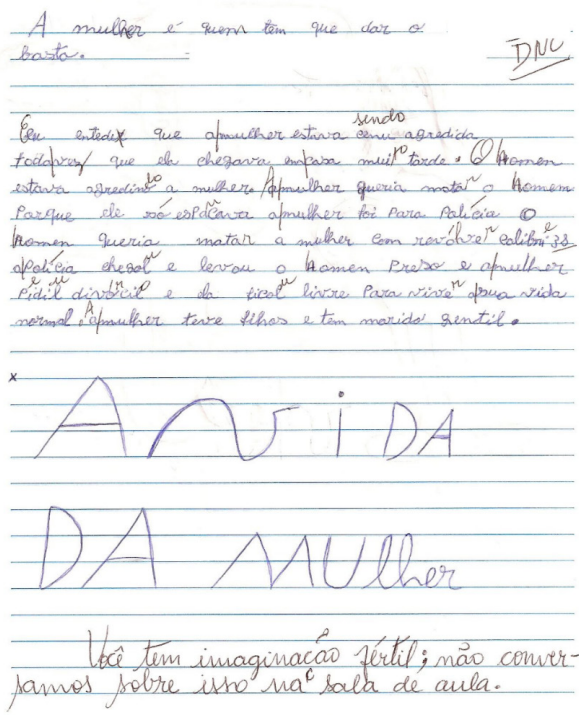 A mulher é quem tem que dar o
basta.
DNC
sendo
Eeu entedir que apmulher estava cenu agredida
todaprez que ela chegava enpasa muito tarde. O homen
estava agredindo a mulher. Apmulher queria matar o homem
Parque ele só espacava apmulher foi Para Palícia O
homen queria matar a mulher com revólver calibri 38
aPolícia chegol e levou o homen Preso e apmulher
Pidil divocil e da ficol livre Para viver psua vida
normal, Apmulher teve filhos e tem marido gentil.
x
A viDA
DA MULher
Você tem imaginação fértil; não conver-
samos sobre isso na sala de aula.